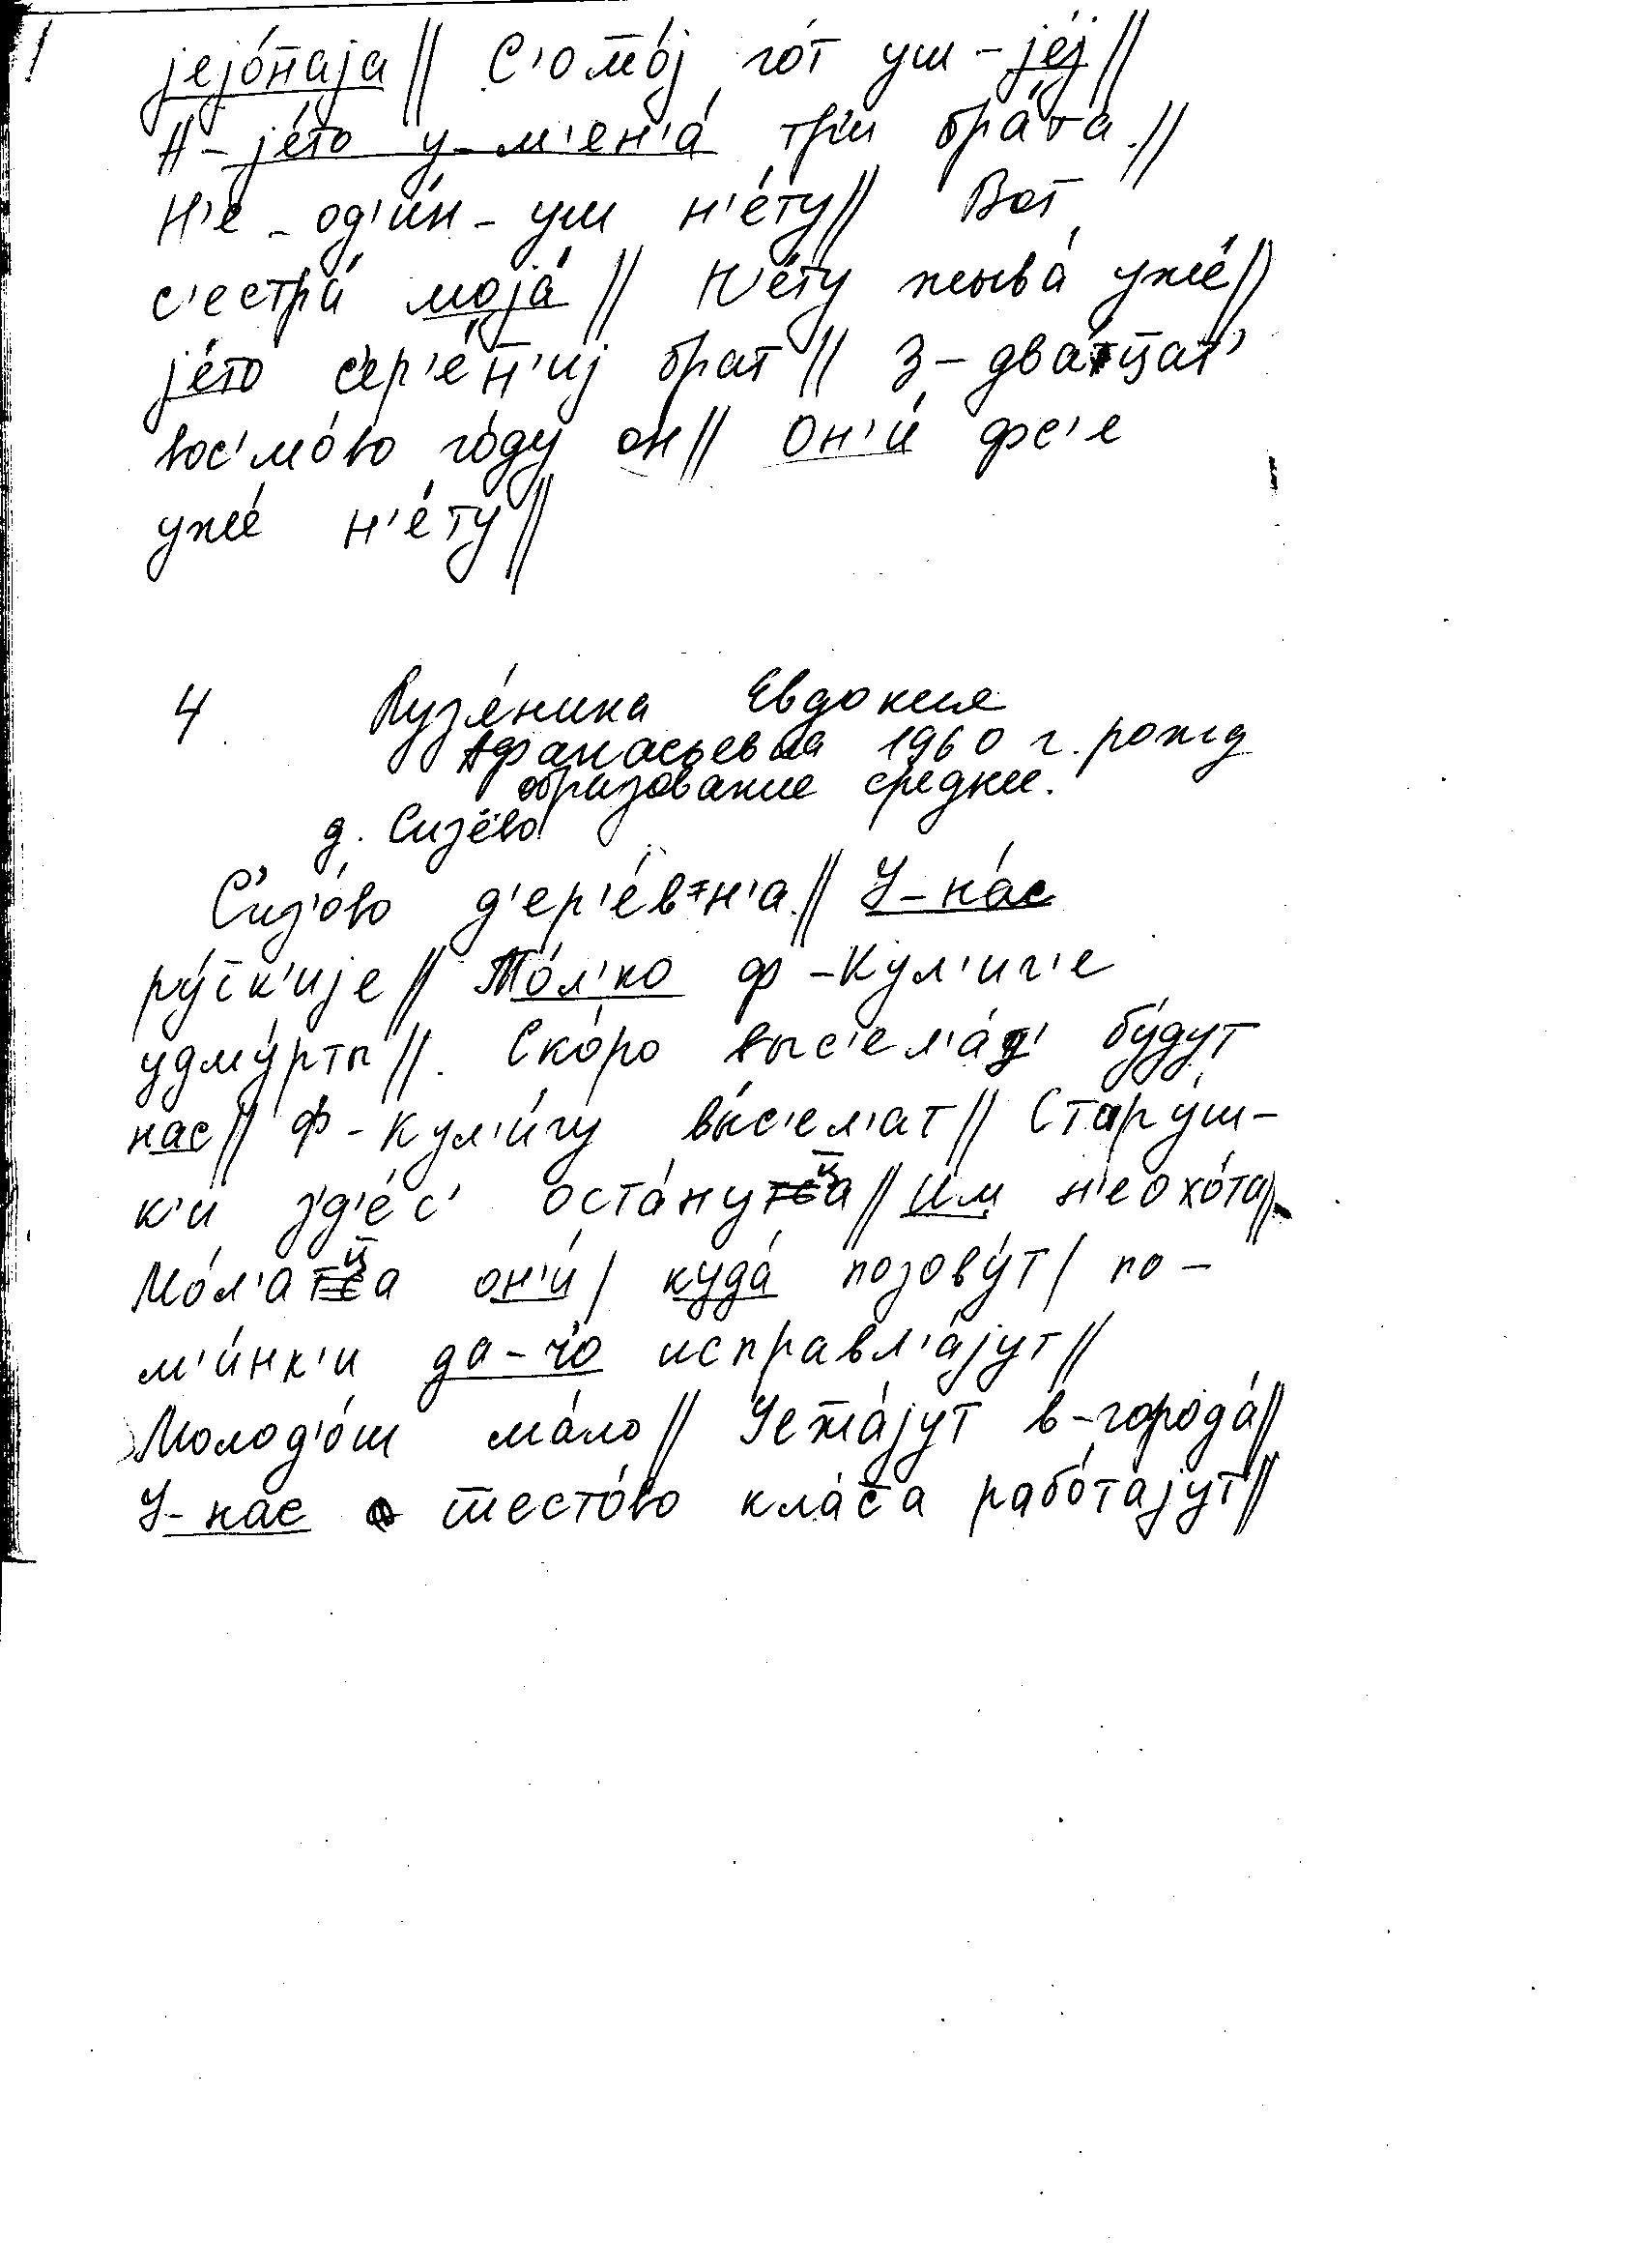 јејо́н̄аја // С'о м̄о́ј го́т уш – је́ј //
А – је́то у – м'ен'а́ три бра́та //
Н'е – од'и́н – уш н'е́ту // Вот
с'естра́ моја́ // Н'е́ту жыва́ уже́ //
је́то с'ер'е́н̄'иј брат // З – два́тцат'
вос'мо́во го́ду он // Он'и́ фс'е
уже́ н'е́ту //
4 Евдокия
Афанасьевна 1960 г. рожд
образование средн��е.
д. Сизёво
С'из'о́во д'ер'е́в'н'а // У – на́с
ру́с̄к'ије // То́л'ко ф – Кул'иг'е
удму́рты // Ско́ро выс'ел'а́т' бу́дут
нас // Ф – Кул'и́гу вы́с'ел'ат // Стару́ш–
к'и з'д'е́с' оста́нуц̄а // Им н'еохо́та //
Мо́л'ац̄а он'и́ / куда́ позову́т / по –
м'и́нк'и да – чо исправл'а́јут //
Молод'о́ш ма́ло // Уеж̄а́јут в – города́ //
У – нас шесто́во кла́с̄а рабо́тајут //